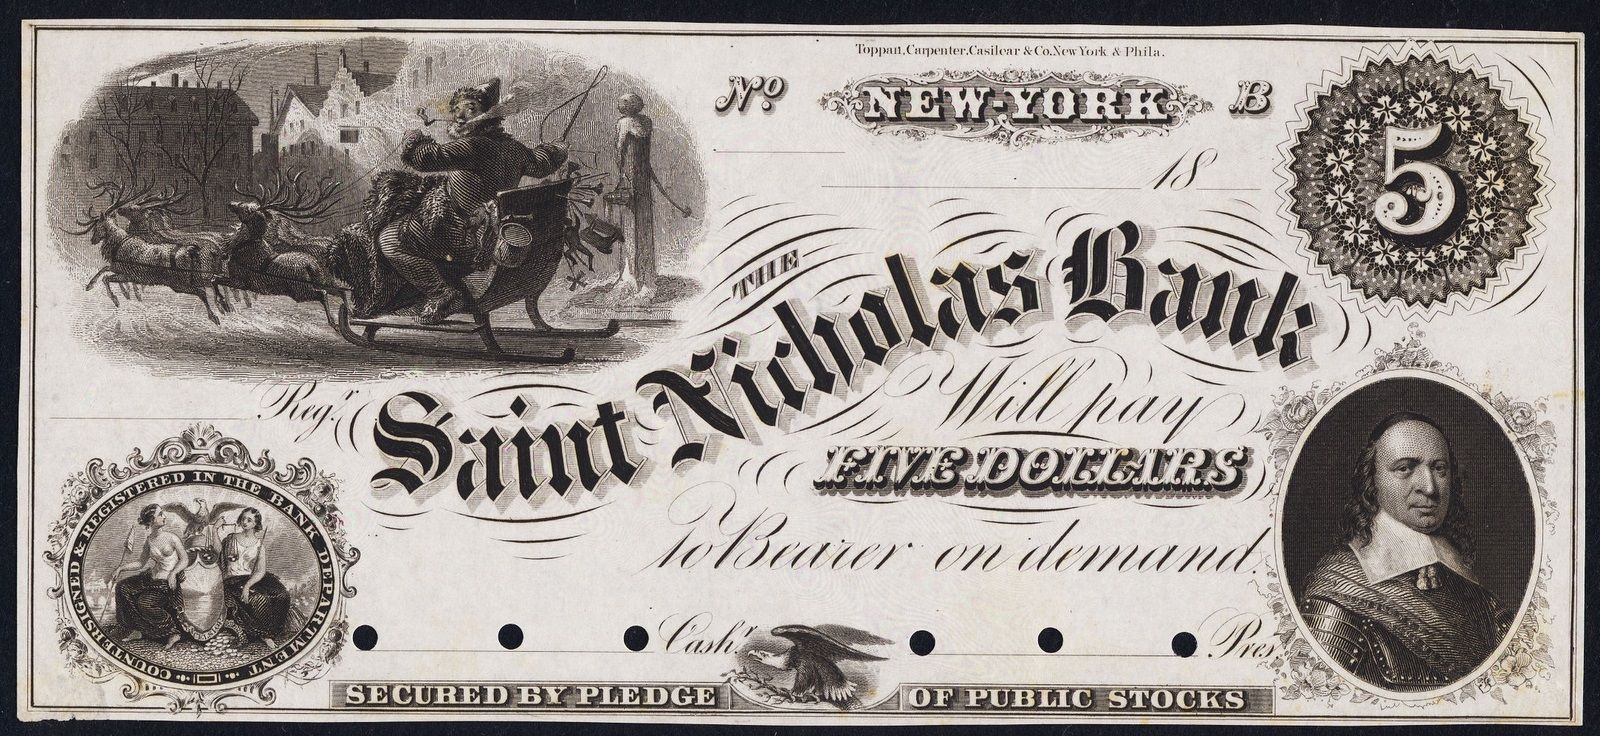 Toppan, Carpenter, Casilear & Co. New York & Phila.
No NEW-YORK B
5
18
THE
Saint Nicholas Bank
Will pay
Regr.
FIVE DOLLARS
to Bearer on demand.
COUNTERSIGNED & REGISTERED IN THE BANK DEPARTMENT
Cashr.
Pres.
SECURED BY PLEDGE OF PUBLIC STOCKS